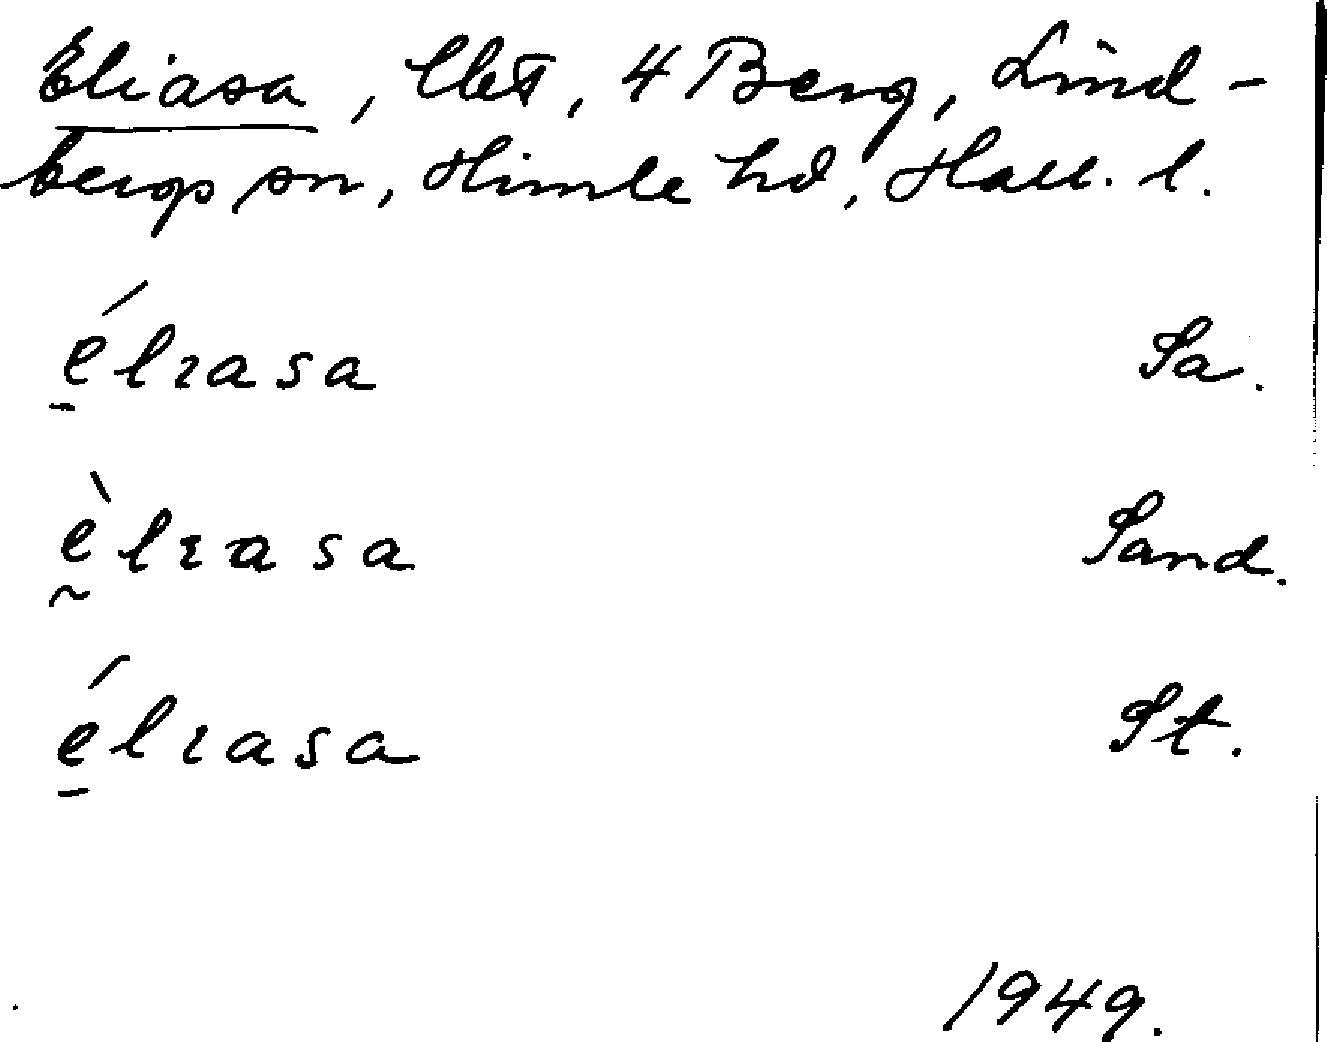 Eliasa, lbt, 4 Berg, Lind-
bergs sn, Himle hd, Hall. l.
é̠lɩasa Sa.
ḛ̀lɩasa Sand.
é̠lɩasa St.
1949.